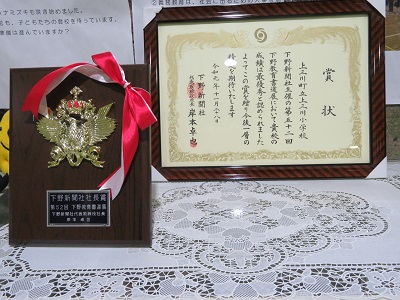 ナミズキも咲き始めました。
も、子どもたちの登校を待っています。
準備は進んでいますか？
賞状
上三川町立上三川小学校
下野新聞社主催の第五十二回
下野教育書道展において貴校の
成績は最優秀と認められました
よってこの賞を贈り今後一層の
精進を期待いたします
令和元年十一月二十八日
下野新聞社
岸本卓也
下野新聞社社長賞
第52回 下野教育書道展
下野新聞社代表取締役社長
岸本 卓也